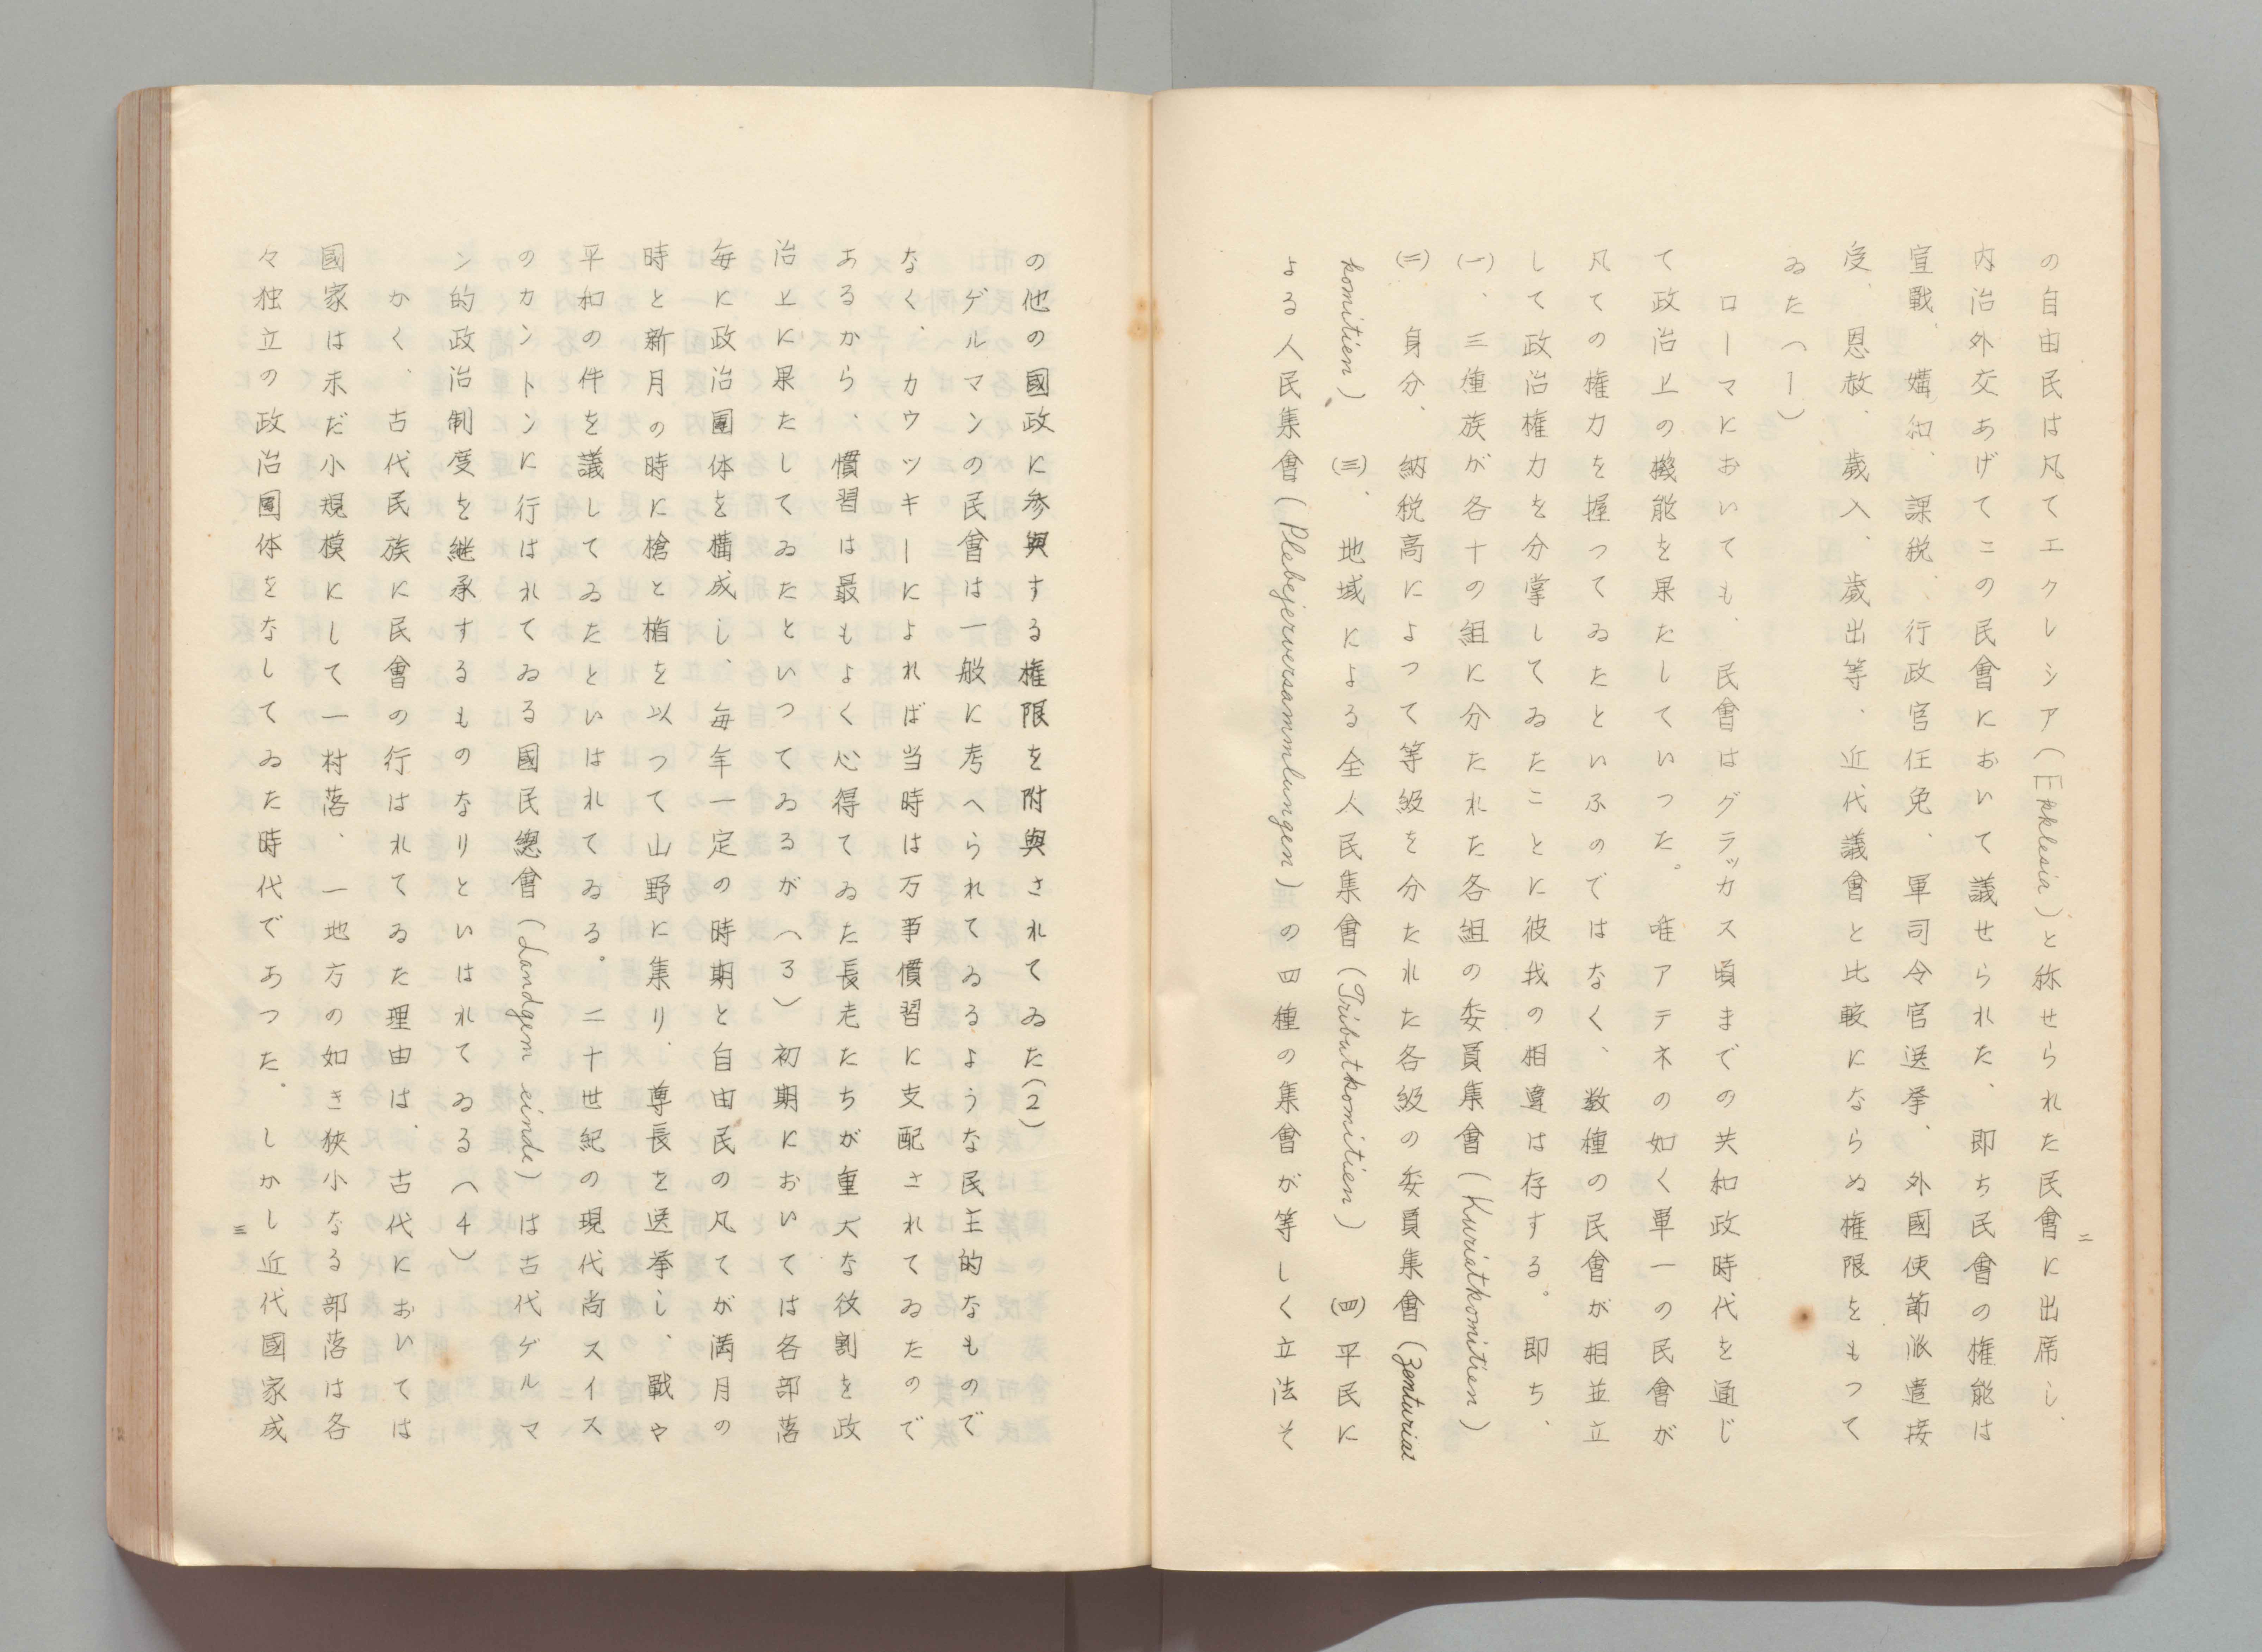 の自由民は凡てエクレシア(Ekklesia)と称せられた民會に出席し、
内治外交あげてこの民會において議せられた、即ち民會の権能は
宣戰、媾和、課税、行政官任免、軍司令官送挙、外國使節派遣接
受、恩赦、歳入、歳出等、近代議會と比較にならぬ権限をもつて
ゐた(1)
ローマにおいても、民會はグラッカス頃までの共和政時代を通じ
て政治上の機能を果たしていつた。唯アテネの如く單一の民會が
凡ての権力を握つてゐたといふのではなく、数種の民會が相並立
して政治権力を分掌してゐたことに彼我の相違は存する。即ち、
(一)、三種族が各十の組に分たれた各組の委員集會(Kuriatkomitien)
(二)身分、納税高によつて等級を分たれた各級の委員集會(Zenturiat
komitien)、(三)、地域による全人民集會(Tributkomitien)(四)平民に
よる人民集會(Plebejerversammlungen)の四種の集會が等しく立法そ
二
の他の國政に参與する権限を附與されてゐた(2)
ゲルマンの民會は一般に考へられてゐるような民主的なもので
なく、カウツキーによれば当時は万事慣習に支配されてゐたので
あるから、慣習は最もよく心得てゐた長老たちが重大な役割を政
治上に果たしてゐたといつてゐるが(3)初期においては各部落
毎に政治團体を構成し、毎年一定の時期と自由民の凡てが満月の
時と新月の時に槍と楯を以つて山野に集り、尊長を送挙し、戰や
平和の件を議してゐたといはれてゐる。二十世紀の現代尚スイス
のカントンに行はれてゐる國民總會(Landgem einde)は古代ゲルマ
ン的政治制度を継承するものなりといはれてゐる(4)
かく、古代民族に民會の行はれてゐた理由は、古代においては
國家は未だ小規模にして一村落、一地方の如き狹小なる部落は各
々独立の政治團体をなしてゐた時代であつた。しかし近代國家成
三